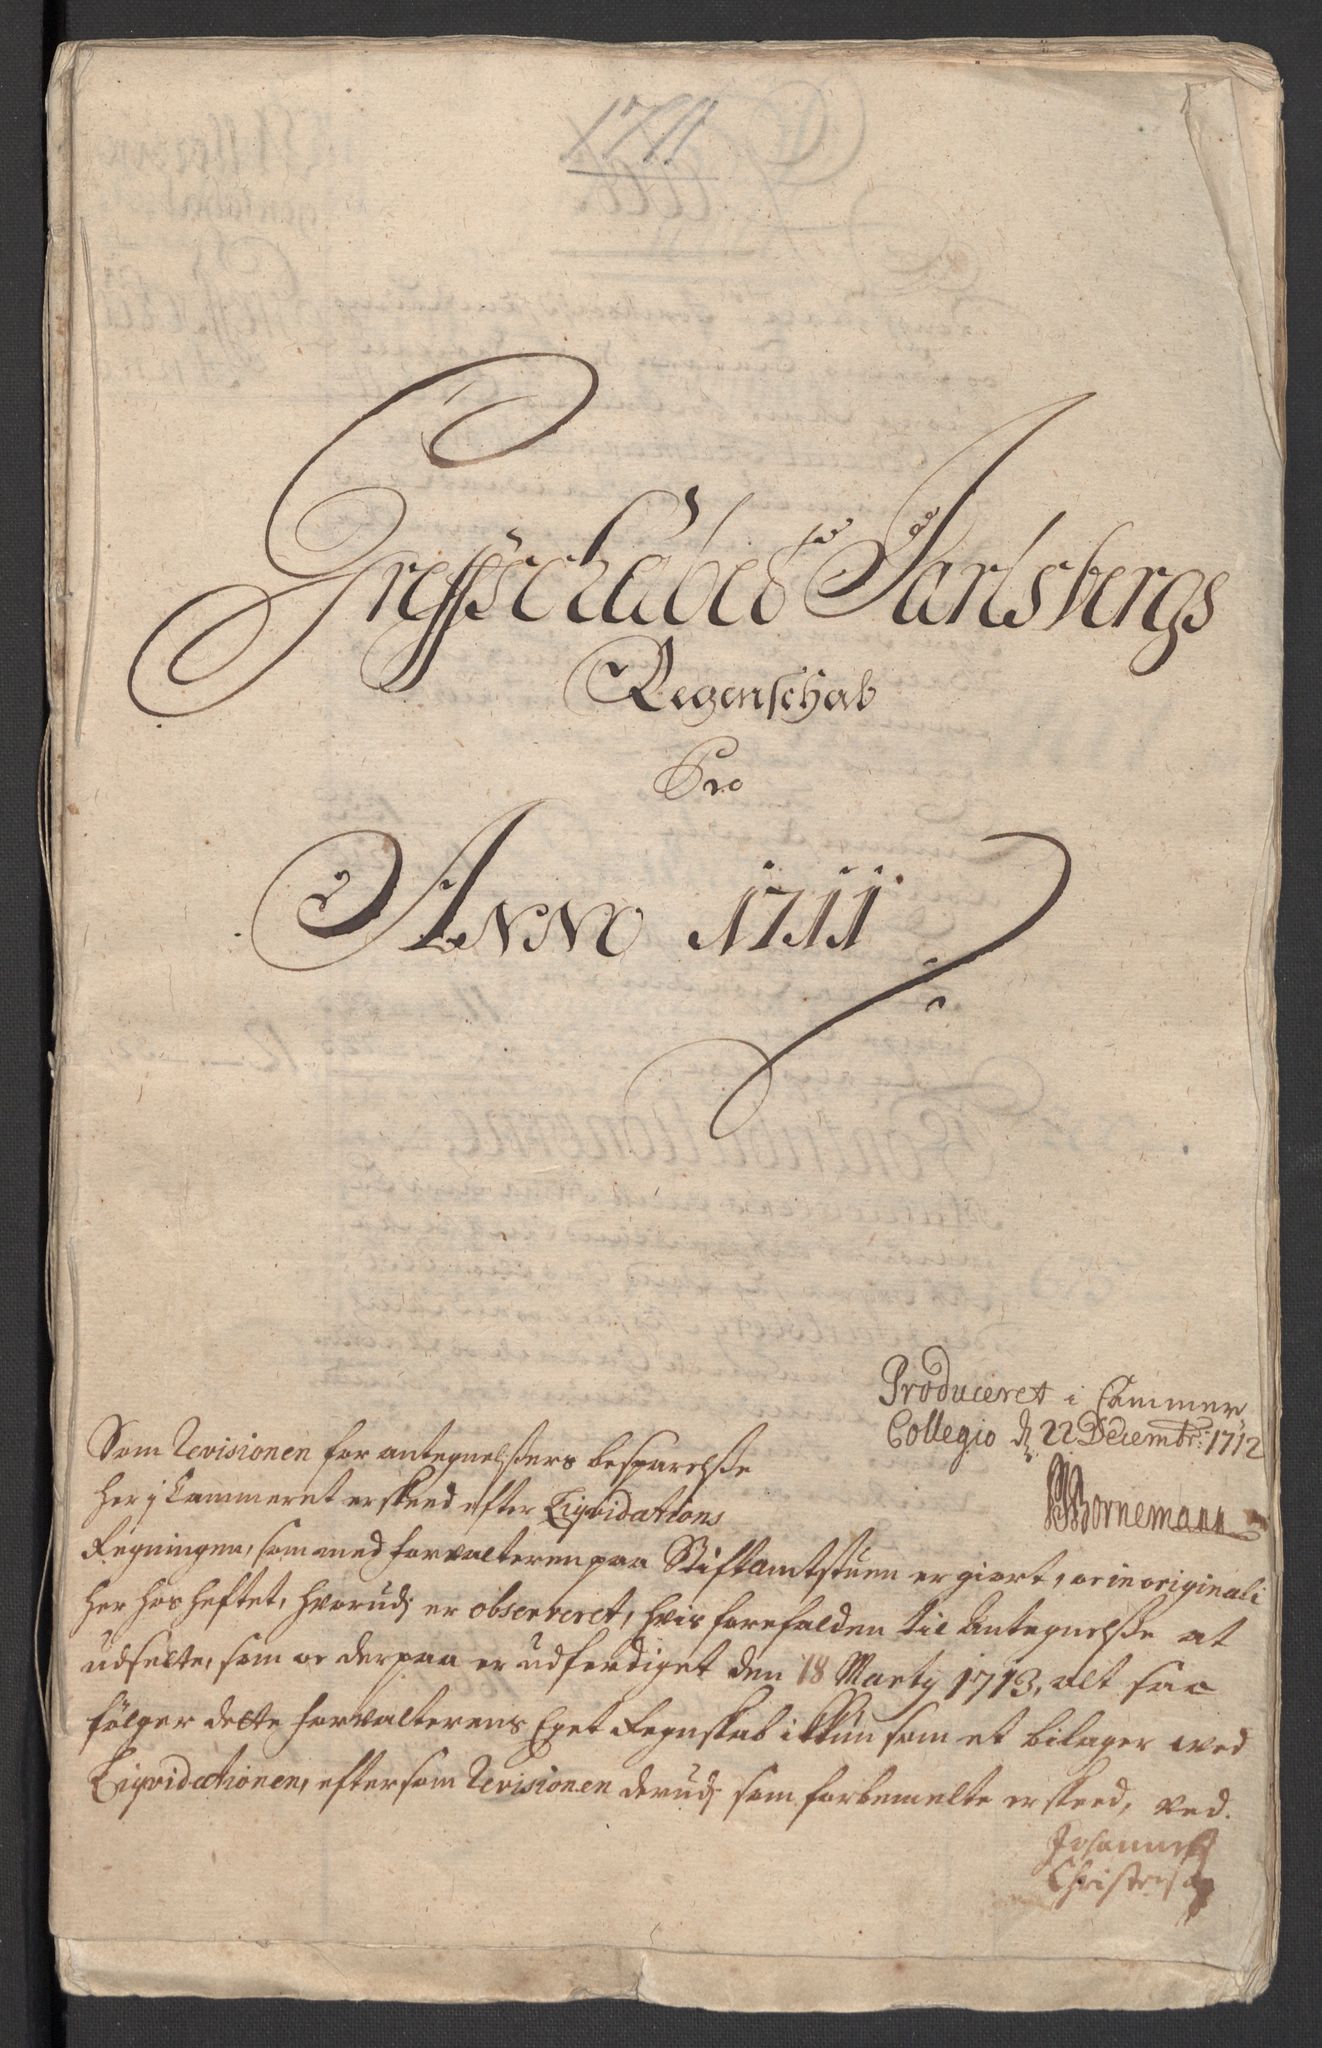 1711
Greffschabed Jarlsbergs
Regenschab
Pro
Anno 1711
Produceret i Cammer
Collegio d. 22 Decembr: 1712
Bornemann
Som Revisionen for antegnelssers besparelsse
her j Cammeret er skeed efter Liqvidations
Regningen, som med forvalteren paa Stiftamtstuen er giort, oc in originali
her hos heftet, hvorudj er observeret, hvis forefalden til Antegnelsse at
udsette, som oc derpaa er udferdiget den 18 Martij 1713, alt saa
følger dette forvalterens Eget Regnskab ikkun som et bilager ved
Liqvidationen, eftersom Revisionen derudj som forbemelte er skeed, ved.
Johannes
Christensen